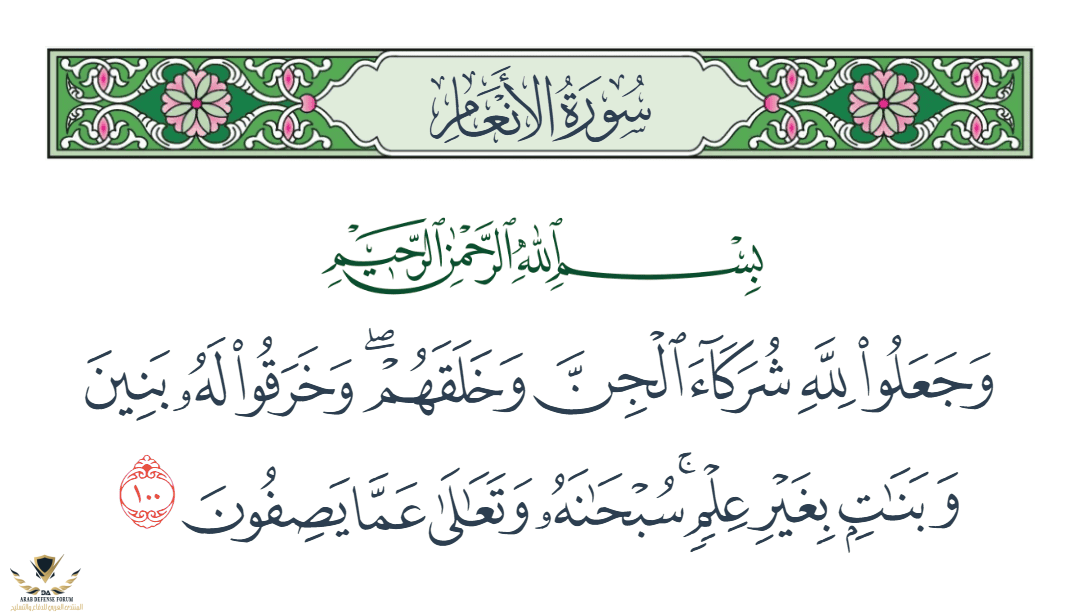 سُورَةُ الأَنْعَامِ
بِسْمِ ٱللَّهِ ٱلرَّحْمَٰنِ ٱلرَّحِيمِ
وَجَعَلُوا۟ لِلَّهِ شُرَكَآءَ ٱلْجِنَّ وَخَلَقَهُمْ ۖ وَخَرَقُوا۟ لَهُۥ بَنِينَ
وَبَنَٰتٍۭ بِغَيْرِ عِلْمٍۢ ۚ سُبْحَٰنَهُۥ وَتَعَٰلَىٰ عَمَّا يَصِفُونَ ١٠٠
DA
ARAB DEFENSE FORUM
المنتدى العربي للدفاع والتسليح